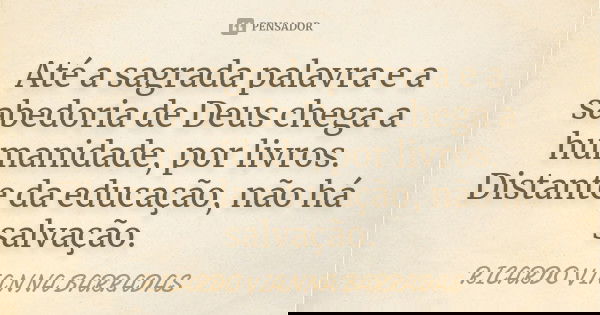 PENSADOR
Até a sagrada palavra e a
sabedoria de Deus chega a
humanidade, por livros.
Distante da educação, não há
salvação.
RICARDO VIANNA BARRADAS